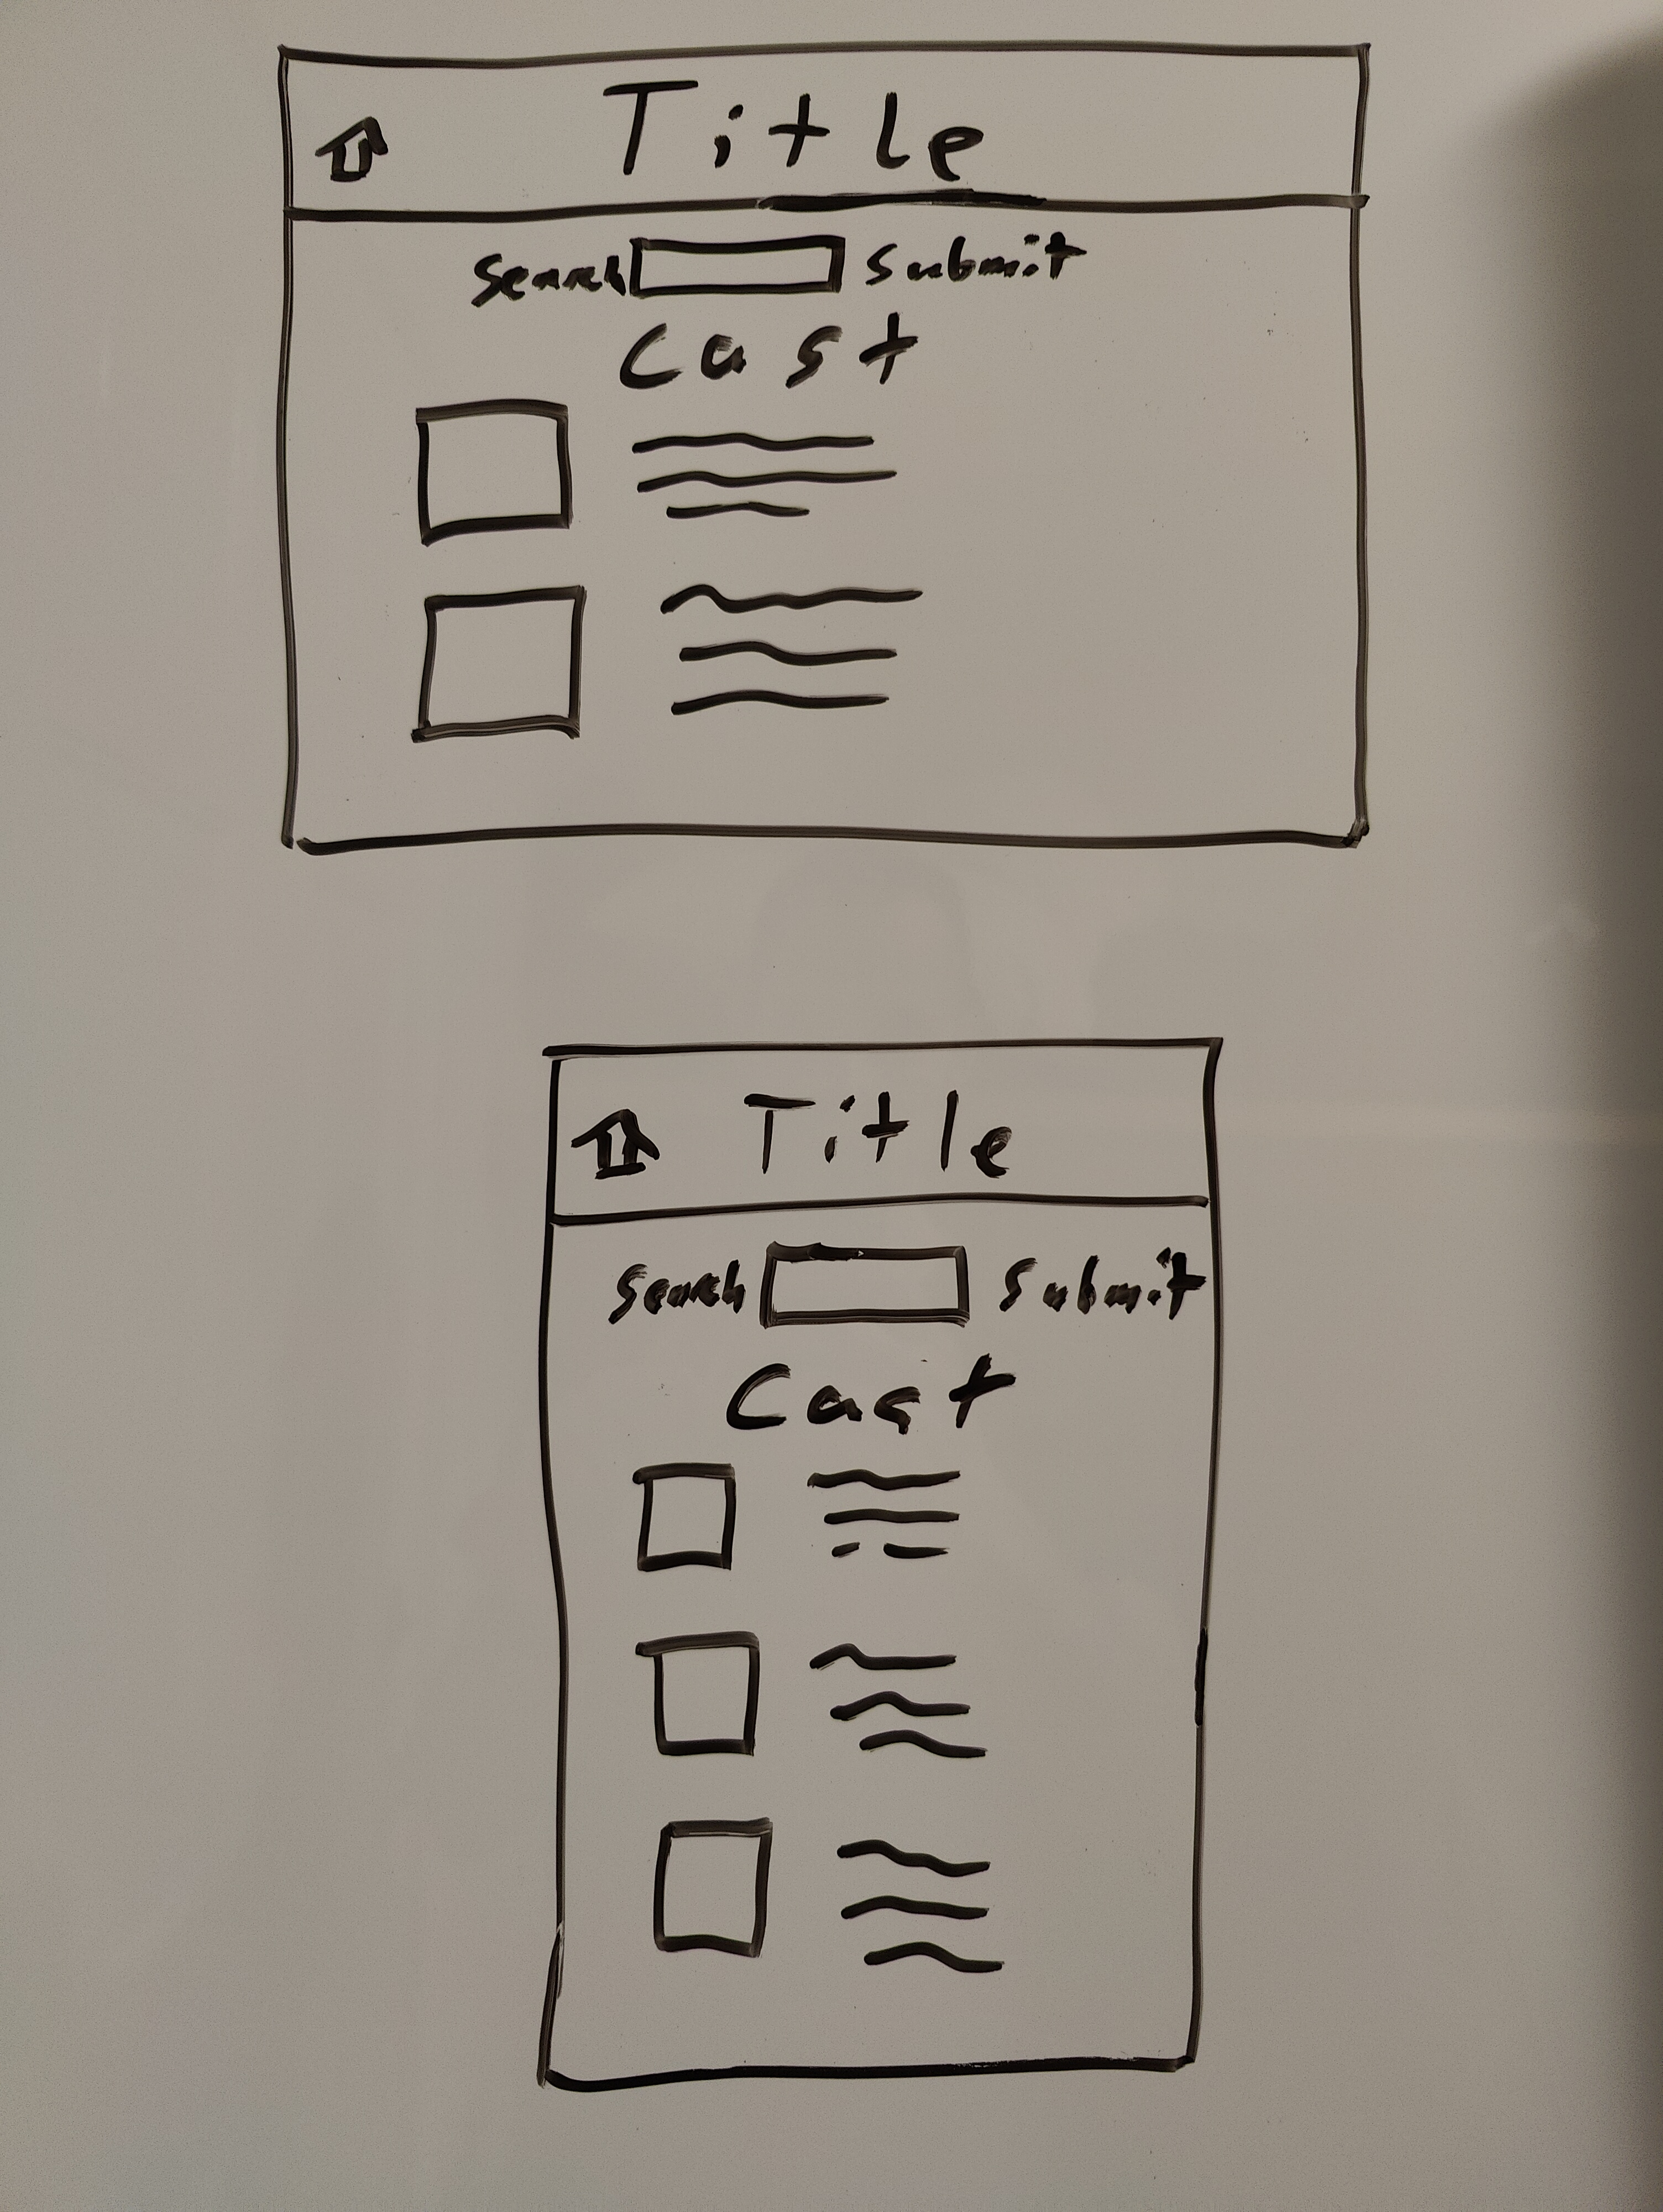 Title
Search Submit
Cast
Title
Search Submit
Cast